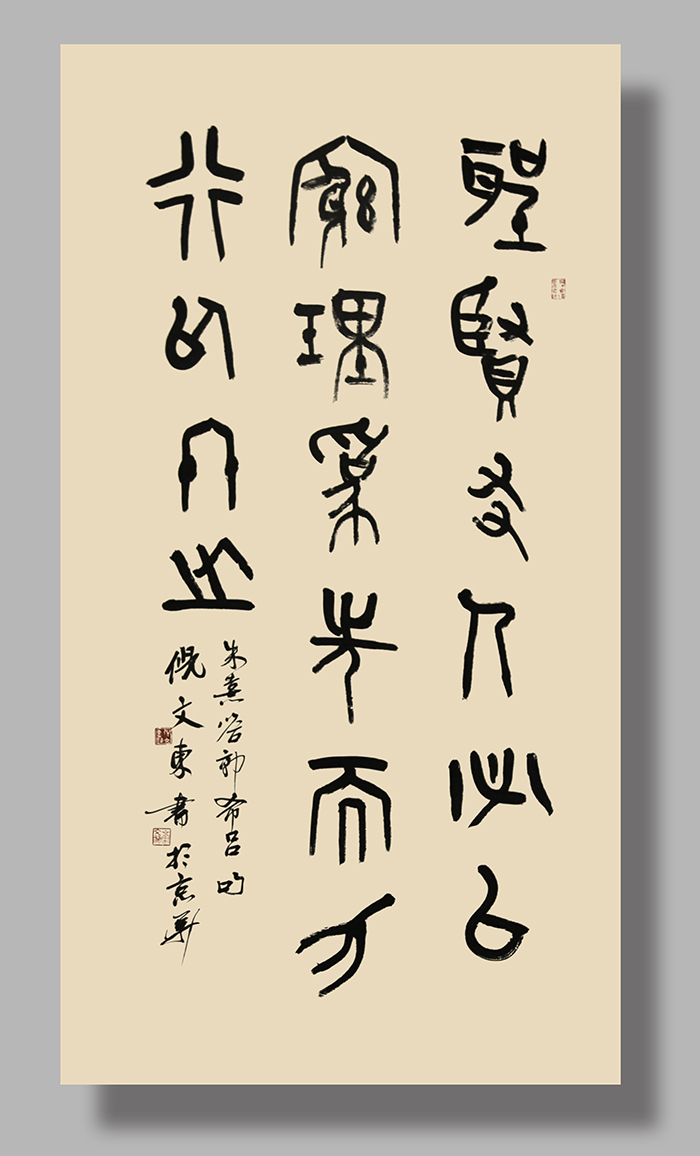 聖賢教人必以
窮理為先而力
行以終之
朱熹答郭希吕句
倪文東書於京華